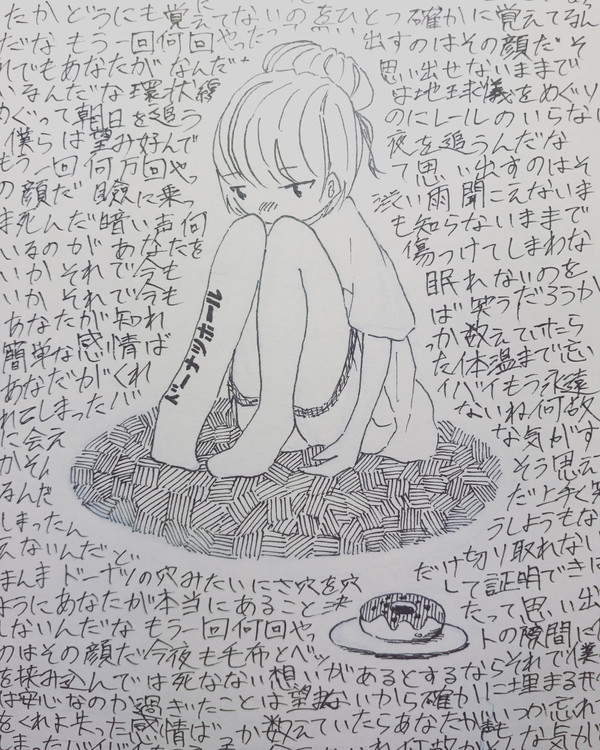 たか どうにも覚えてないのを ひとつ確かに覚えてるん
だな もう一回何回やったって 思い出すのはその顔だ そ
れでもあなたが なんだか 思い出せないままで
いるんだな 環状線 は地球儀をめぐり
めぐって 朝日を追う のにレールのいらな
僕らは望み好んで 夜を追うんだな
もう一回 何万回やっ て思い出すのはそ
の顔だ 瞼に乗っ 渋い雨 聞こえないま
ま死んだ暗い声 何 も知らないままで
いるのが あなたを 傷つけてしまわな
いか それで今も 眠れないのを
いか それで今も ば 笑うだろうか
あなたが 知れ
っか数えていたら
簡単な感情ば った体温まで忘
あなたがくれ イバイもう永遠
れてしまったバ ないね何故
に会え な気がす
かそん そう思え
るんだ だ上手く笑
しまったん うしようもな
えないんだ ど だけ切り取れない
まんま ドーナツの穴みたいにさ穴を穴 して証明できは
ようにあなたが本当にあること 決 たって思い出
しないんだな もう一回何回やっ トの隙間に
のはその顔だ今夜も毛布とベッ
を挟み込んでは 死なない想いが あるとするなら それで僕
は安心なのか 過ぎたことは望まないから 確かに埋まる
をくれよ 失った感情ばっか 数えていたらあなたが か忘れ
ドーナツホール